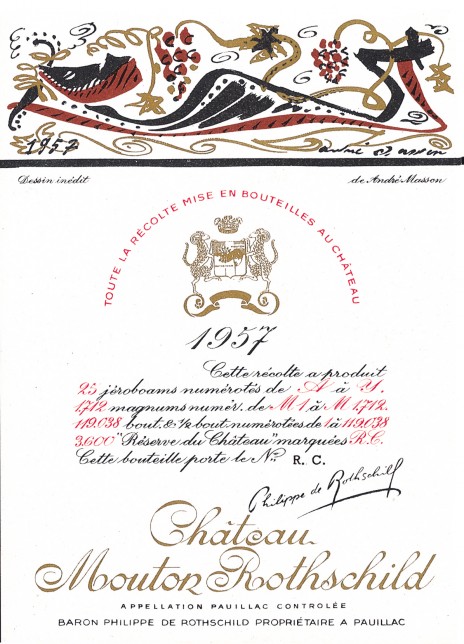 1957 andré masson
Dessin inédit de André Masson
TOUTE LA RÉCOLTE MISE EN BOUTEILLES AU CHÂTEAU
1957
Cette récolte a produit
25 jéroboams numérotés de A à Y.
1,712 magnums numér. de M 1 à M 1,712.
119.038 bout. & ½ bout. numérotées de 1 à 119.038
3.600 "Réserve du Château" marquées R.C.
Cette bouteille porte le No. R. C.
Philippe de Rothschild
Château
Mouton Rothschild
APPELLATION PAUILLAC CONTROLÉE
BARON PHILIPPE DE ROTHSCHILD PROPRIÉTAIRE A PAUILLAC